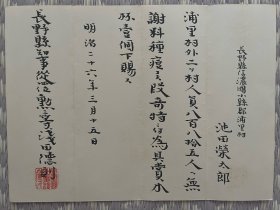 長野縣信濃國小縣郡浦里村
池田榮太郎
浦里村外二ヶ村人員八百八拾五人ヘ無
謝料種痘ス段奇特ニ付為其賞木
杯壹個下賜ス
明治二十六年三月十五日
長野縣知事從四位勲三等淺田徳則